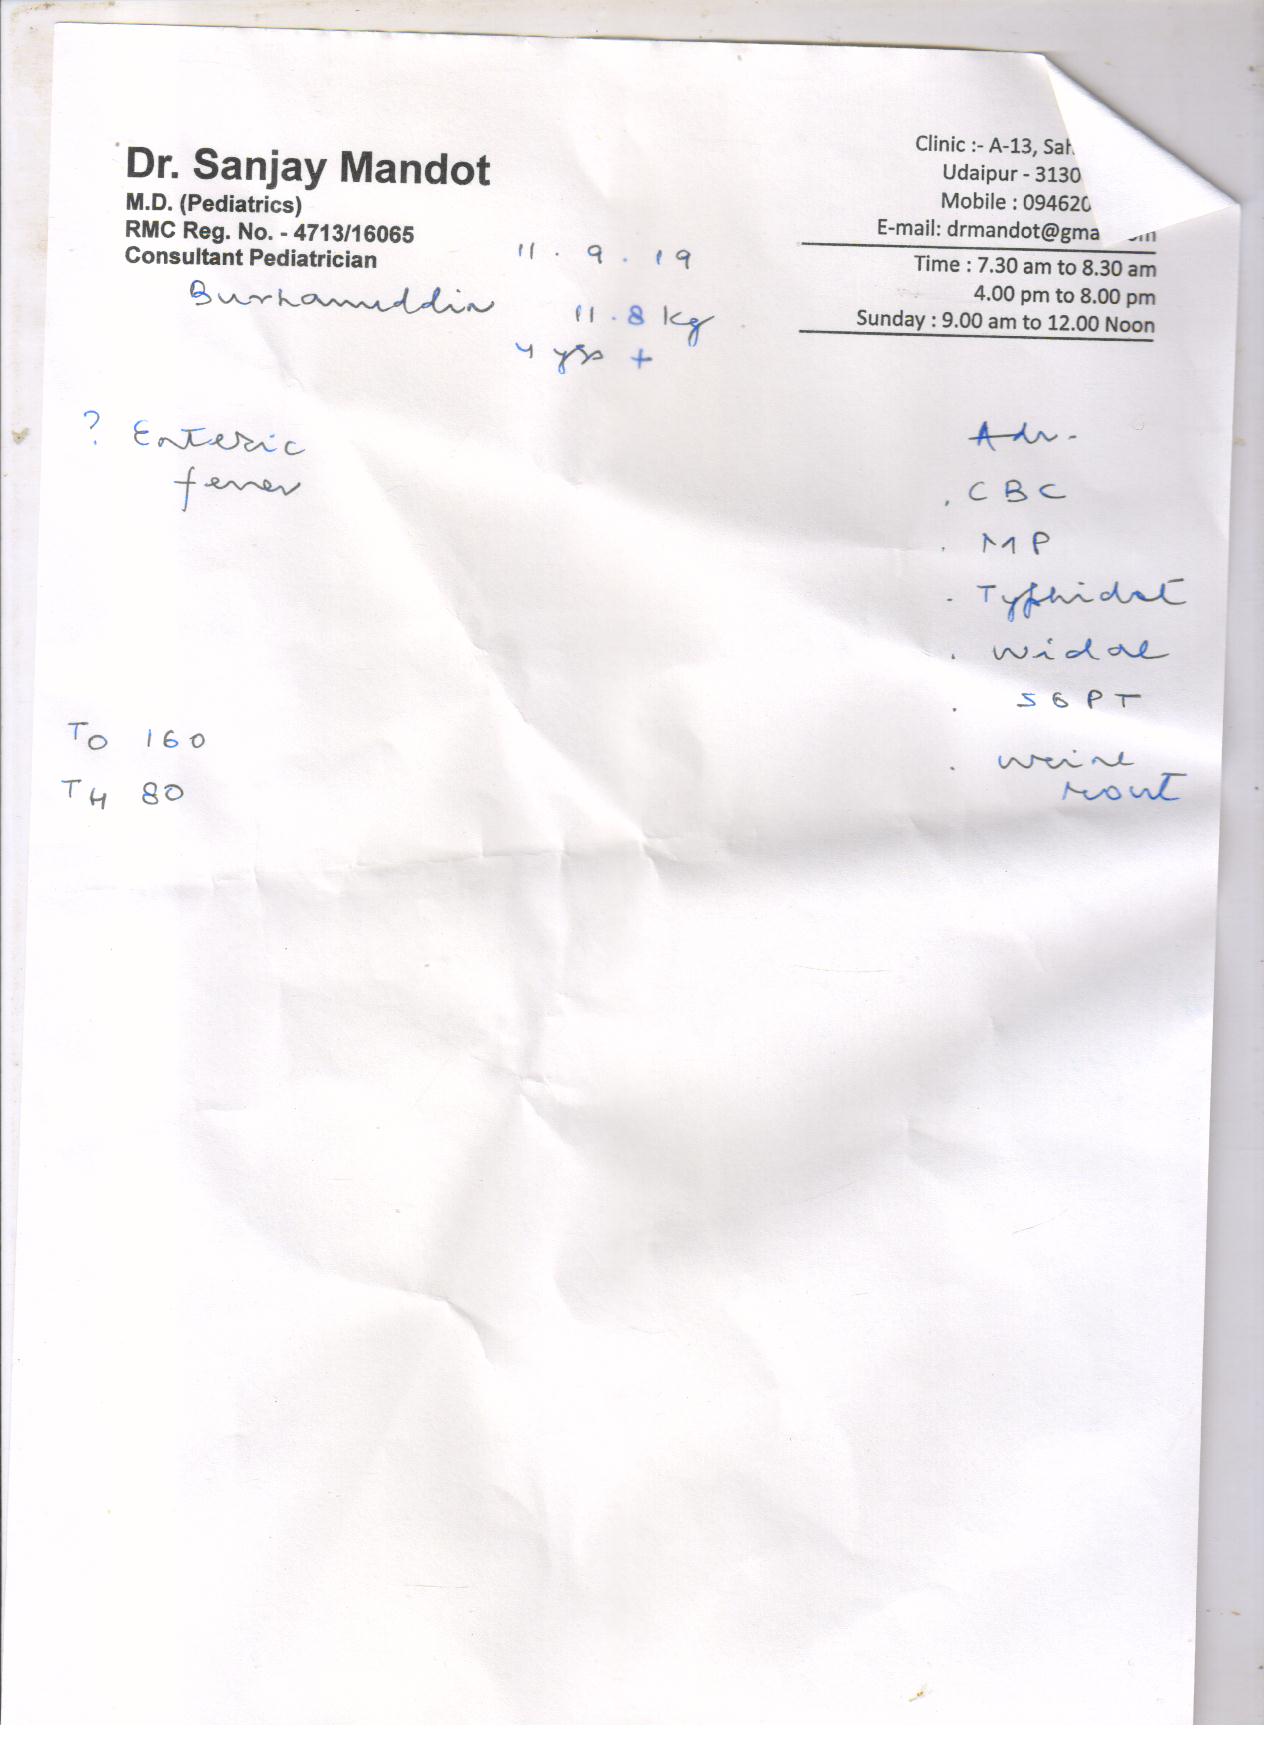 Dr. Sanjay Mandot
M.D. (Pediatrics)
RMC Reg. No. - 4713/16065
Consultant Pediatrician
Clinic :- A-13,
Udaipur - 3130
Mobile : 094620
E-mail: drmandot@gma
Time : 7.30 am to 8.30 am
4.00 pm to 8.00 pm
Sunday : 9.00 am to 12.00 Noon
11 . 9 . 19
Burhanuddin 11.8 kg
4 yrs +
? Enteric
fever
Adv.
. CBC
. MP
. Typhidot
. Widal
. SGPT
. Urine
Rout
TO 160
TH 80